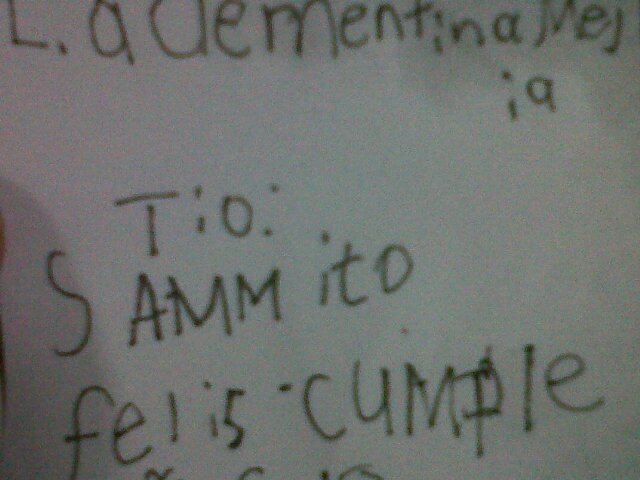 L. a Clementina Mej
ia
Tio:
SAMMito
felis cumple